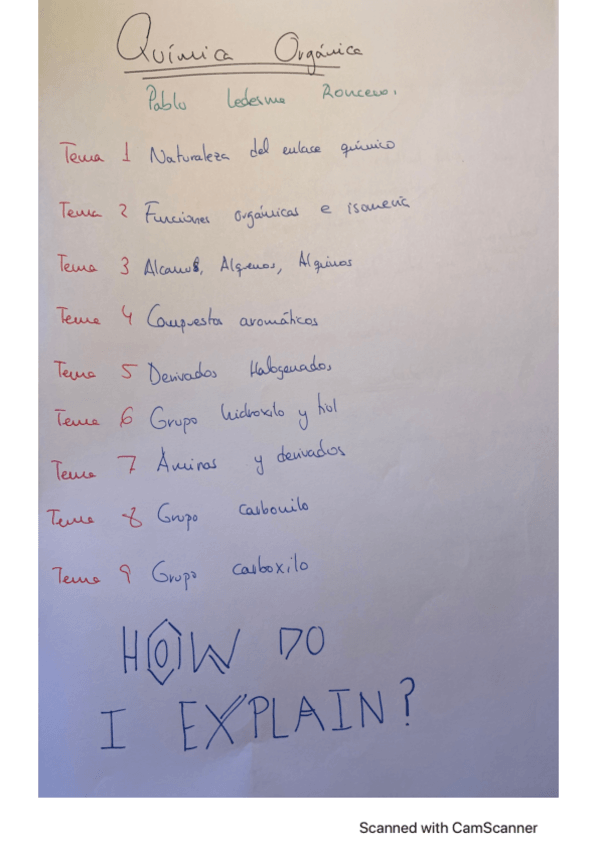 Química Orgánica
Pablo Ledesma Roncero.
Tema 1 Naturaleza del enlace químico
Tema 2 Funciones orgánicas e isomería
Tema 3 Alcanos, Alquenos, Alquinos
Tema 4 Compuestos aromáticos
Tema 5 Derivados Halogenados
Tema 6 Grupo hidroxilo y tiol
Tema 7 Aminas y derivados
Tema 8 Grupo carbonilo
Tema 9 Grupo carboxilo
HOW DO
I EXPLAIN?
Scanned with CamScanner